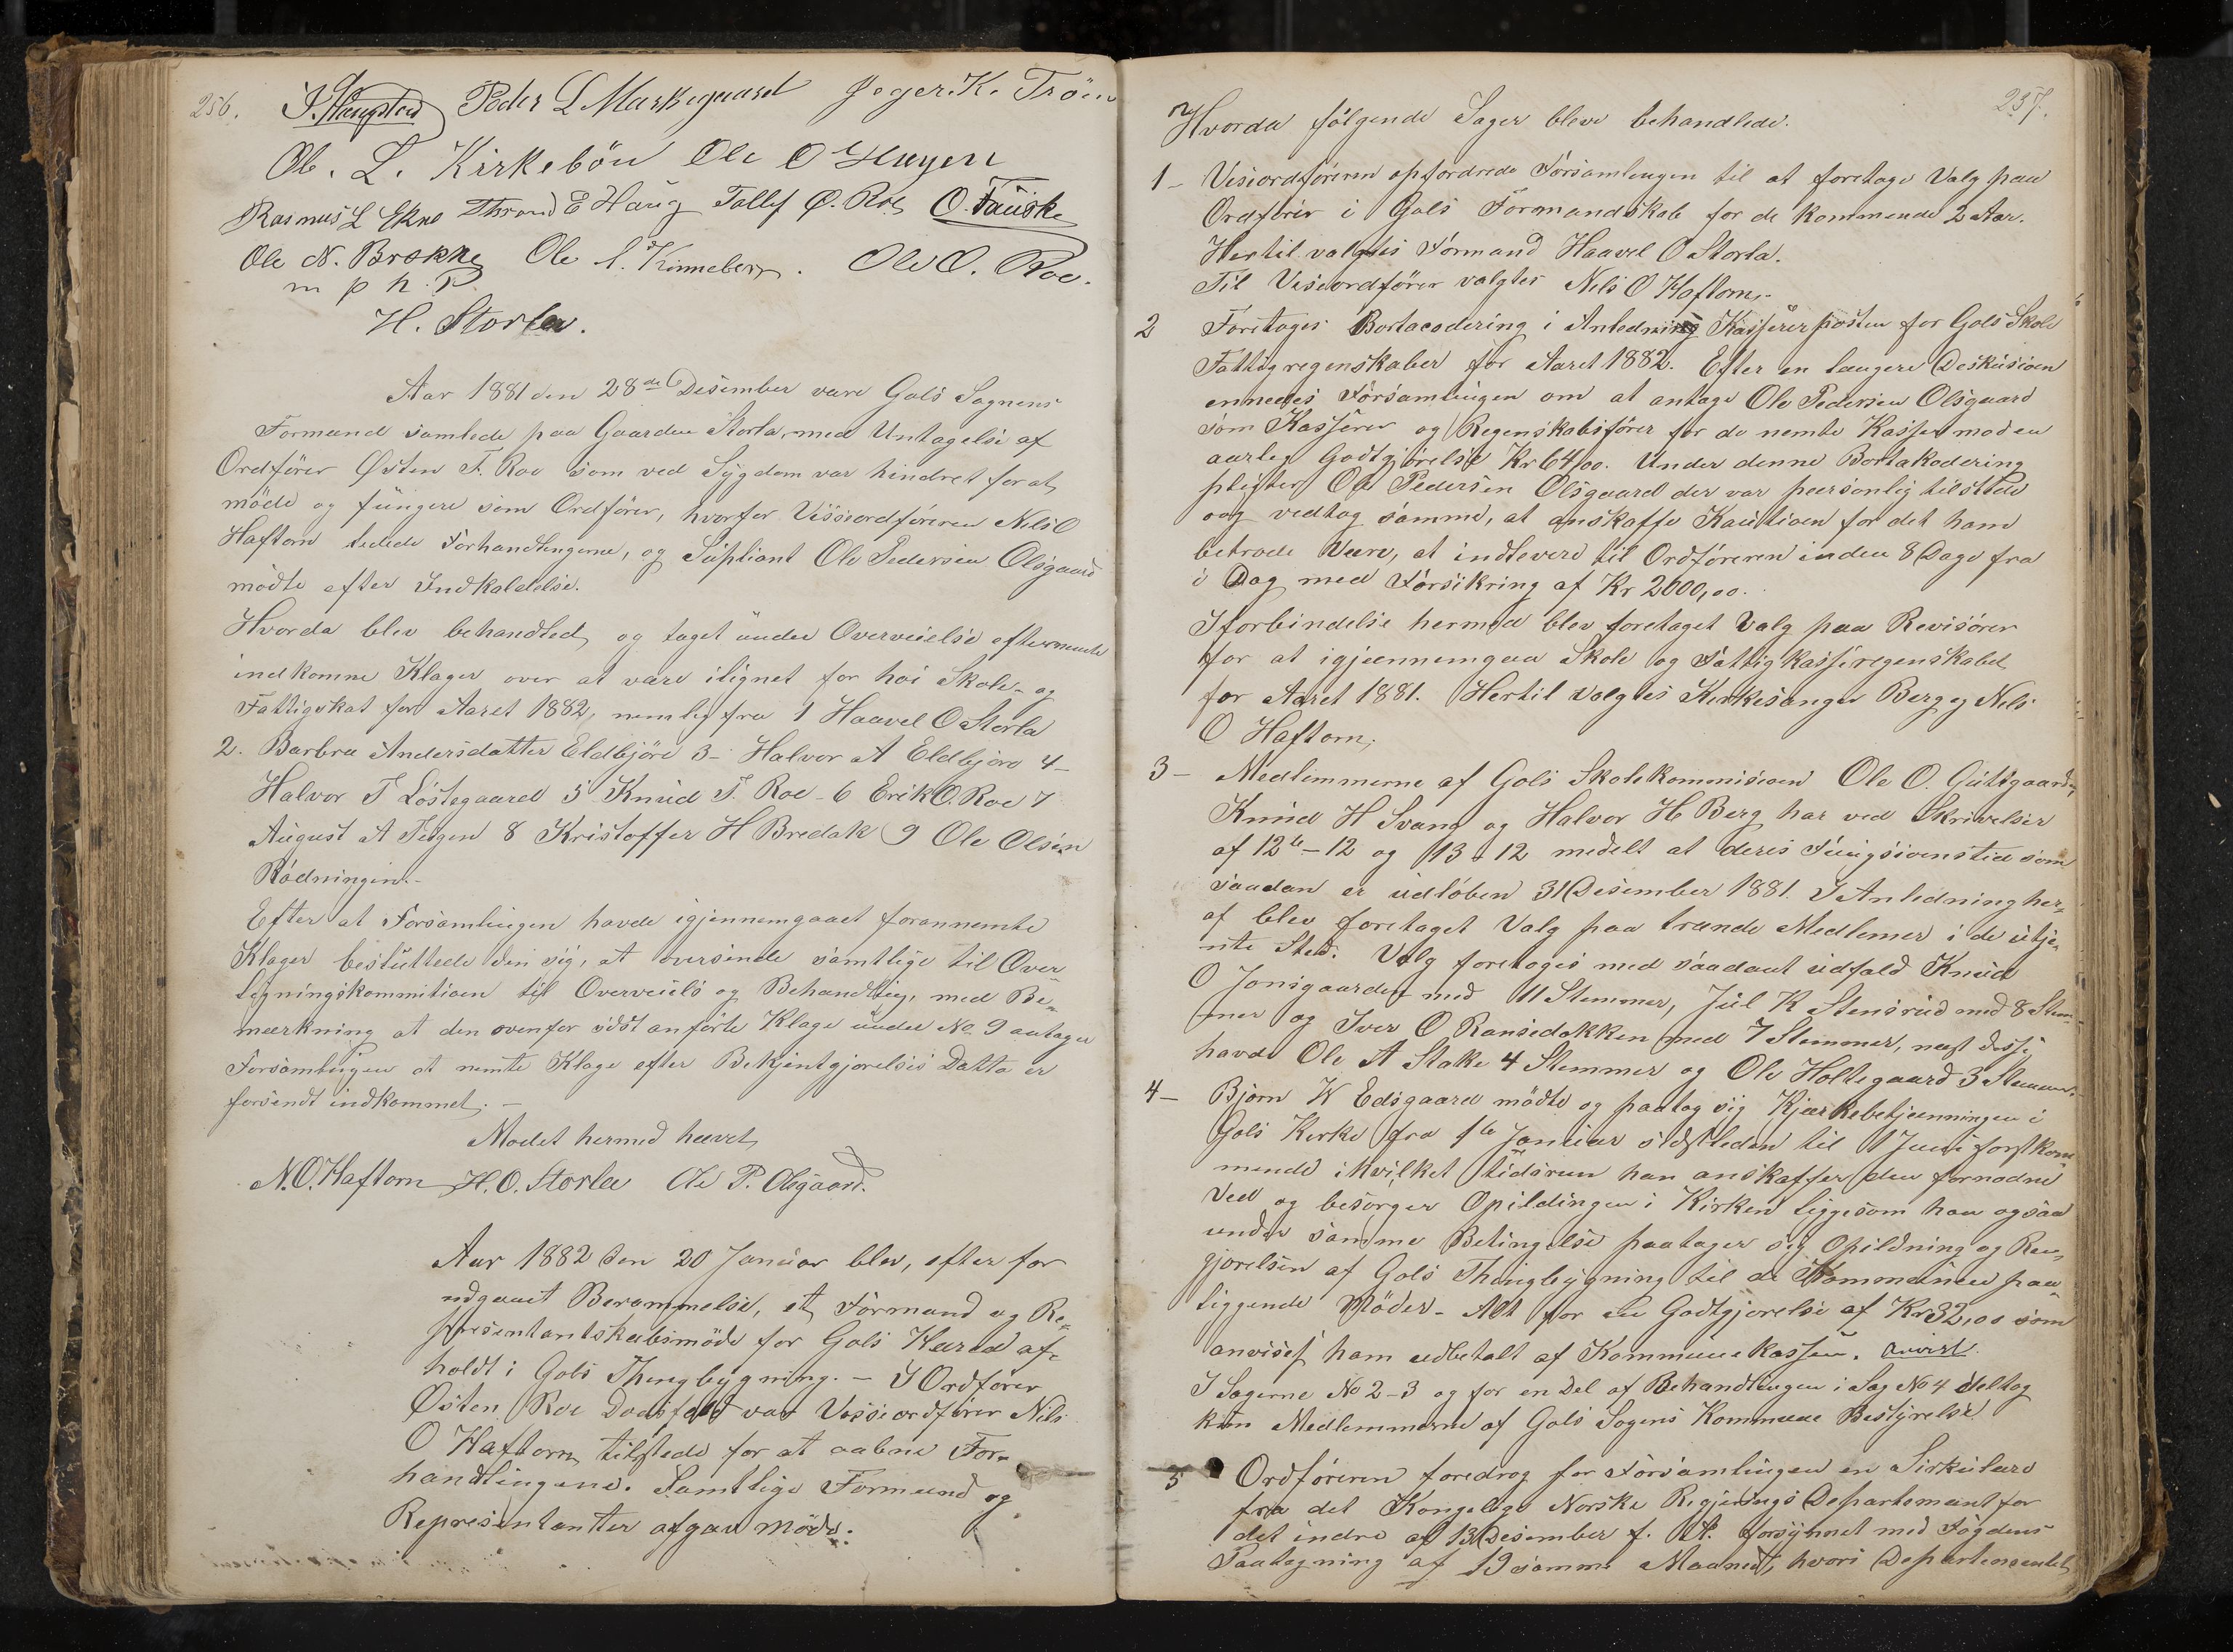 256.
Peder L Markegaard Jeger K. Tröim
Ole. L. Kirkebön Ole O Huyen
Rasmus L Ekre Thrond E Haug Tollef Ø. Roe O. Fauske
Ole N. Brokke Ole S. Kinneberg. Ole O. Roe.
m p h. P.
H. Storla.
Aar 1881 den 28de Desember vare Gols Sognens
Formænd samlede paa Gaarden Storla, med Untagelse af
Ordförer Østen T. Roe som ved Sygdom var hindret for at
möde og füngere som Ordförer, hvorfor Visseordföreren Nils O
Haftorn ledede Forhandlingerne, og Supliant Ole Pedersen Olsgaard
mödte efter Indkaldelse.
Hvorda blev behandled og taget under Overveielse efternevnte
indkomne Klager over at være ilignet for höi Skole- og
Fattigskat for Aaret 1882, nemlig fra 1 Haavel O Storla
2. Barbra Andersdatter Eldbjöre 3- Halvor A Eldbjöre 4-
Halvor T Löstegaard 5 Knud T. Roe - 6 Erik O. Roe 7
August A Teigen 8 Kristoffer H Bredak 9 Ole Olsen
Rödningen.-
Efter at Forsamlingen havde igjennemgaaet forannemte
Klager besluttede den sig, at oversende samtlige til Over
ligningskommitioen til Overveiels og Behandling, med Be-
mærkning at den ovenfor sidst anförte Klage under No 9 antager
Forsamlingen at nemte Klage efter Bekjentgjörelses Datto er
forsendt indkommet. -
Mödet hermed hævet
N. O. Haftorn H. O. Storla Ole P. Olsgaard.
Aar 1882 den 20 Januar blev, efter for
udgaaet Berammelse, et Formænd og Re-
presentantskabsmöde for Gols Herred af-
holdt i Gols Thingbygning. - I Ordförer
Østen Roe Dodsfald var Visseordförer Nils
O Haftorn tilstede for at aabne For-
handlingene. Samtlige Formænd og
Representanter afgav Möde.
257.
Hvorda fölgende Sager bleve behandlede.
1- Viseordföreren opfordrede Forsamlingen til at foretage Valg paa
Ordförer i Gols Formandskab for de kommende 2 Aar.
Hertil valgtes Formand Haavel O Storla.
Til Viseordförer valgtes Nils O Haftorn.-
2 Foretages Bortacodering i Anledning Kasserer posten for Gols Skole
Fattigregenskaber for Aaret 1882. Efter en længere Deskusioen
ennedes Forsamlingen om at antage Ole Pedersen Olsgaard
som Kasserer og Regenskabsförer for de nemte Kasser mod en
aarleg Godtgjörelse Kr 64,00. Under denne Bortakodering
pligter Ole Pedersen Olsgaard der var personlig tilstede
og vedtog samme, at anskaffe Kautioen for det ham
betroede Være, at indlevere til Ordföreren inden 8 Dage fra
i Dag med Forsikring af Kr 2000,00.
I forbindelse hermed blev foretaget Valg paa Revisörer
for at igjennemgaa Skole og Fattigkasseregenskabet
for Aaret 1881. Hertil valgtes Kirkesanger Berg og Nils
O Haftorn.
3- Medlemmerne af Gols Skolekommisioen Ole O. Guttgaarden,
Knud H Svang og Halvor H Berg har ved Skrivelser
af 12te-12 og 13-12 medelt at deres Fungsioenstid som
saadan er udlöben 31 Desember 1881. I Anledning her-
af blev foretaget Valg paa trænde Medlemer i de utje-
nte Sted. Valg foretoges med saadant udfald Knud
O Jonsgaarden med 11 Stemmer, Jul K Stensrud med 8 Stem-
mer og Iver O Ransedokken med 7 Stemmer, nest desse
havde Ole A Stake 4 Stemmer og Ole Holtegaard 3 Stemmer.
4- Björn K Edsgaard mödte og paatog sig Kjærkebetjenningen i
Gols Kirke fra 1te Januar sidstleden til 1 Juni forstkom-
mende i hvilket tidsrum han anskaffer den fornödne
Ved og besörger Opildingen i Kirken liggesom han ogsaa
under samme Betingelse paatager sig Opildning og Ren-
gjörelsen af Gols Thingbygning til de Kommunen paa-
liggende Möder. Alt for en Godtgjörelse af Kr 32,00 som
anvises ham udbetalt af Kommunekassen. anvist.
I Sagerne No 2-3 og for en Del af Behandlingen i Sag No 4 deltog
kun Medlemmerne af Gols Sogens Kommune Bestyrelse
5 Ordföreren foredrog for Forsamlingen en Sirkulære
fra det Kongelige Norske Regjerings Departement for
det indre af 13 Desember f. A. forsynnet med Fogdens
Paategning af 19 samme Maaned, hvori Departementet